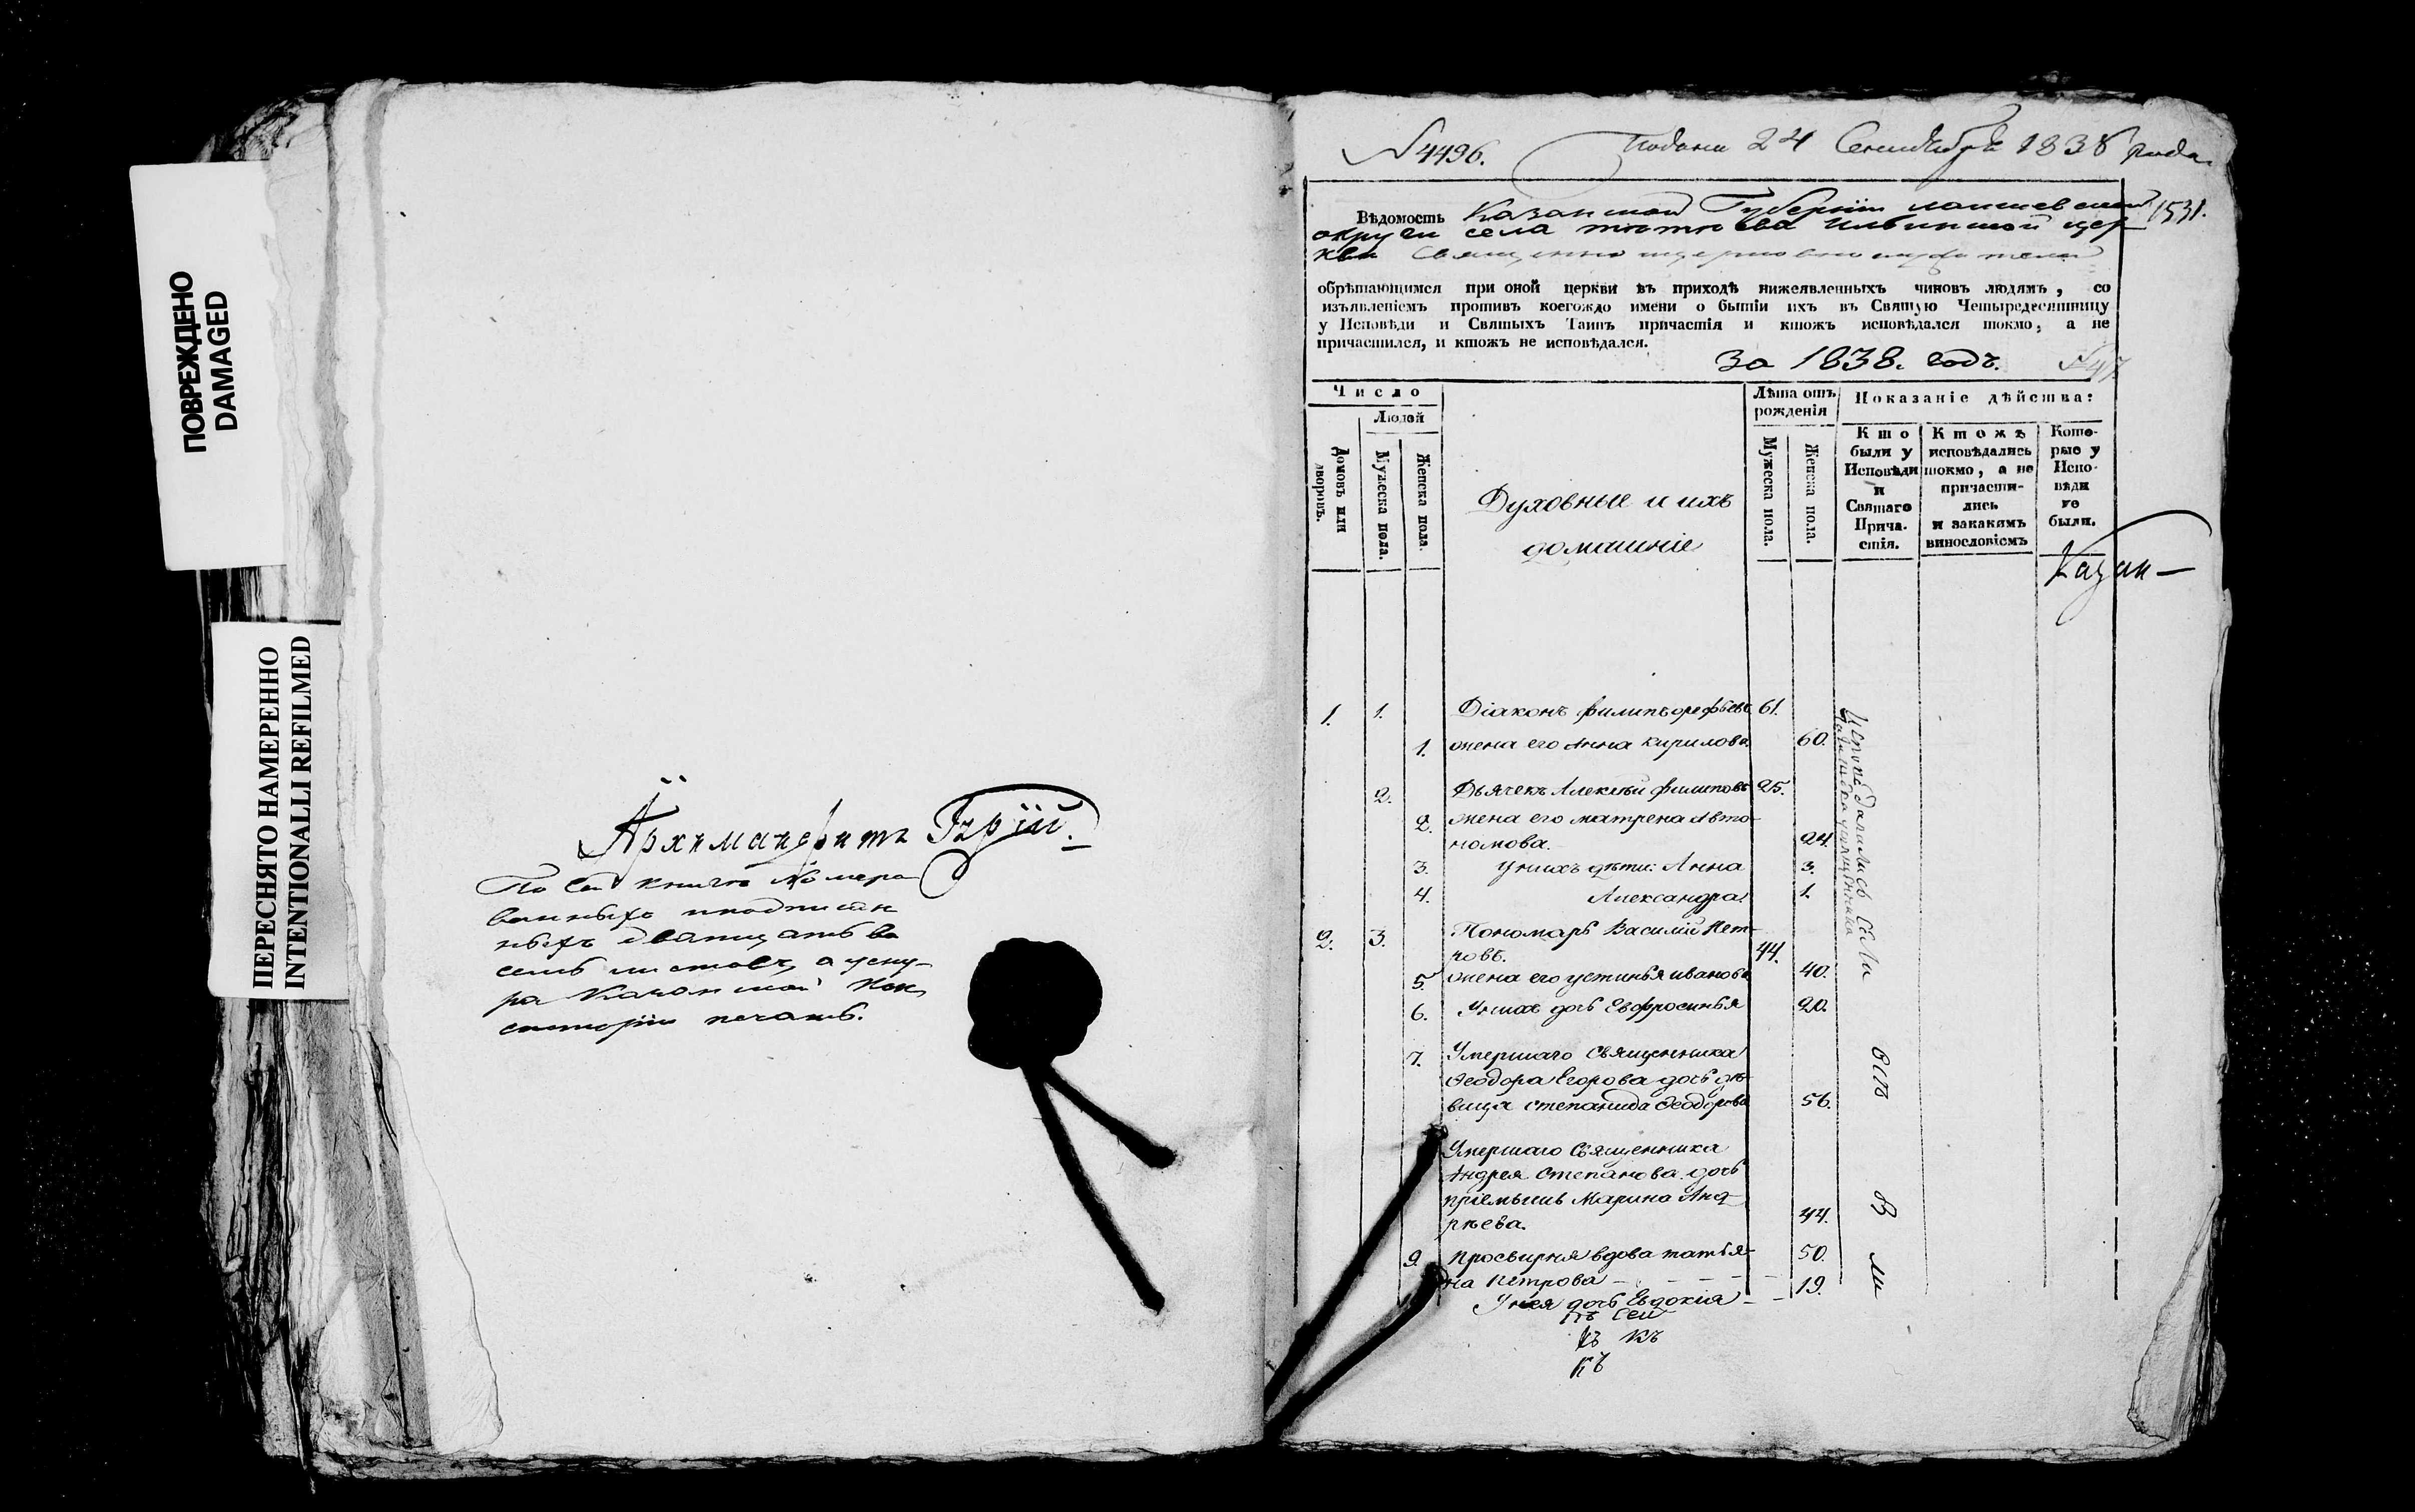 ПОВРЕЖДЕНО
DAMAGED
ПЕРЕСНЯТО НАМЕРЕННО
INTENTIONALLI REFILMED
Архимандритъ Гурій.
По сей книгѣ номеро
ванныхъ
ныхъ дватцать во
семь листовъ, а у сну-
ра Казанской Кон
систоріи печать.
N 4496. Подана 24 Сентября 1838 года
Вѣдомость Казанской Губерніи лаишевской 1531.
округи села Ильинской цер
кви Священно церковно служителей
обрѣтающимся при оной церкви въ приходѣ нижеявленныхъ чиновъ людямъ, со
изъявленіемъ противъ коегождо имени о бытіи ихъ въ Святую Четыредесятницу
у Исповѣди и Святыхъ Таинъ причастія и ктожъ исповѣдался токмо, а не
причастился, и ктожъ не исповѣдался.
За 1838. годъ. N 47.
Число
Людей
Домовъ или дворовъ.
Мужеска пола.
Женска пола.
Духовные и ихъ
домашніе
Лѣта отъ
рожденія
Мужеска пола.
Женска пола.
Показаніе дѣйства:
Кто
были у
Исповѣди
и
Святаго
Прича-
стія.
Ктожъ
исповѣдались
токмо, а не
причасти-
лись
и закакимъ
винословіемъ
Кото-
рые у
Испо-
вѣди
не
были.
Казан—
1. 1. Діаконъ филипъ орефьевъ 61.
1. жена его Анна Кирилова 60.
2. Дьячекъ Алексѣй филиповъ 25.
2. жена его матрена Авто-
номова. 24.
3. У нихъ дѣти: Анна 3.
4. Александра 1.
2. 3. Пономарь Василій Пет-
ровъ. 44.
5. жена его устинья иванова 40.
6. У нихъ дочь Евфросинья 20.
7. Умершаго Священника
Феодора Егорова дочь дѣ-
вица степанида Феодорова 56.
Умершаго Священника
Андрея Степанова дочь
пріемышъ Марина Анд-
рѣева. 44.
9. просвирня вдова татья- 50.
на Петрова
У нея дочь Евдокія 19.
Исповѣдались
всѣ